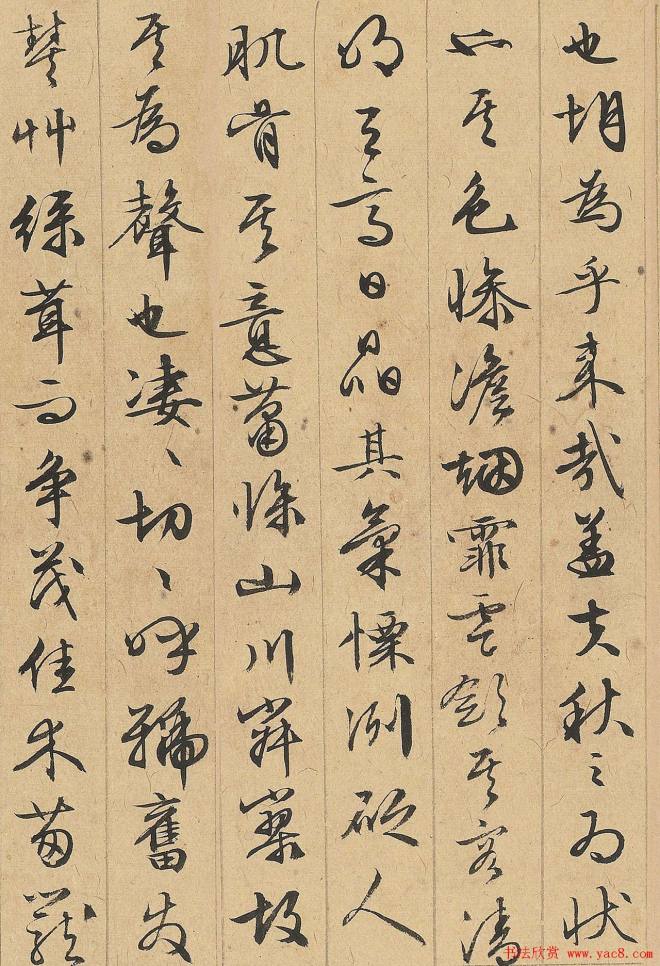 也胡為乎来哉盖夫秋之為状
也其色惨澹烟霏雲斂其容清
明天高日晶其氣慄冽砭人
肌骨其意蕭條山川寂寥故
其為聲也凄〻切〻呼號奮發
豐草綠茸而争茂佳木葱蘢
书法欣赏 www.yac8.com